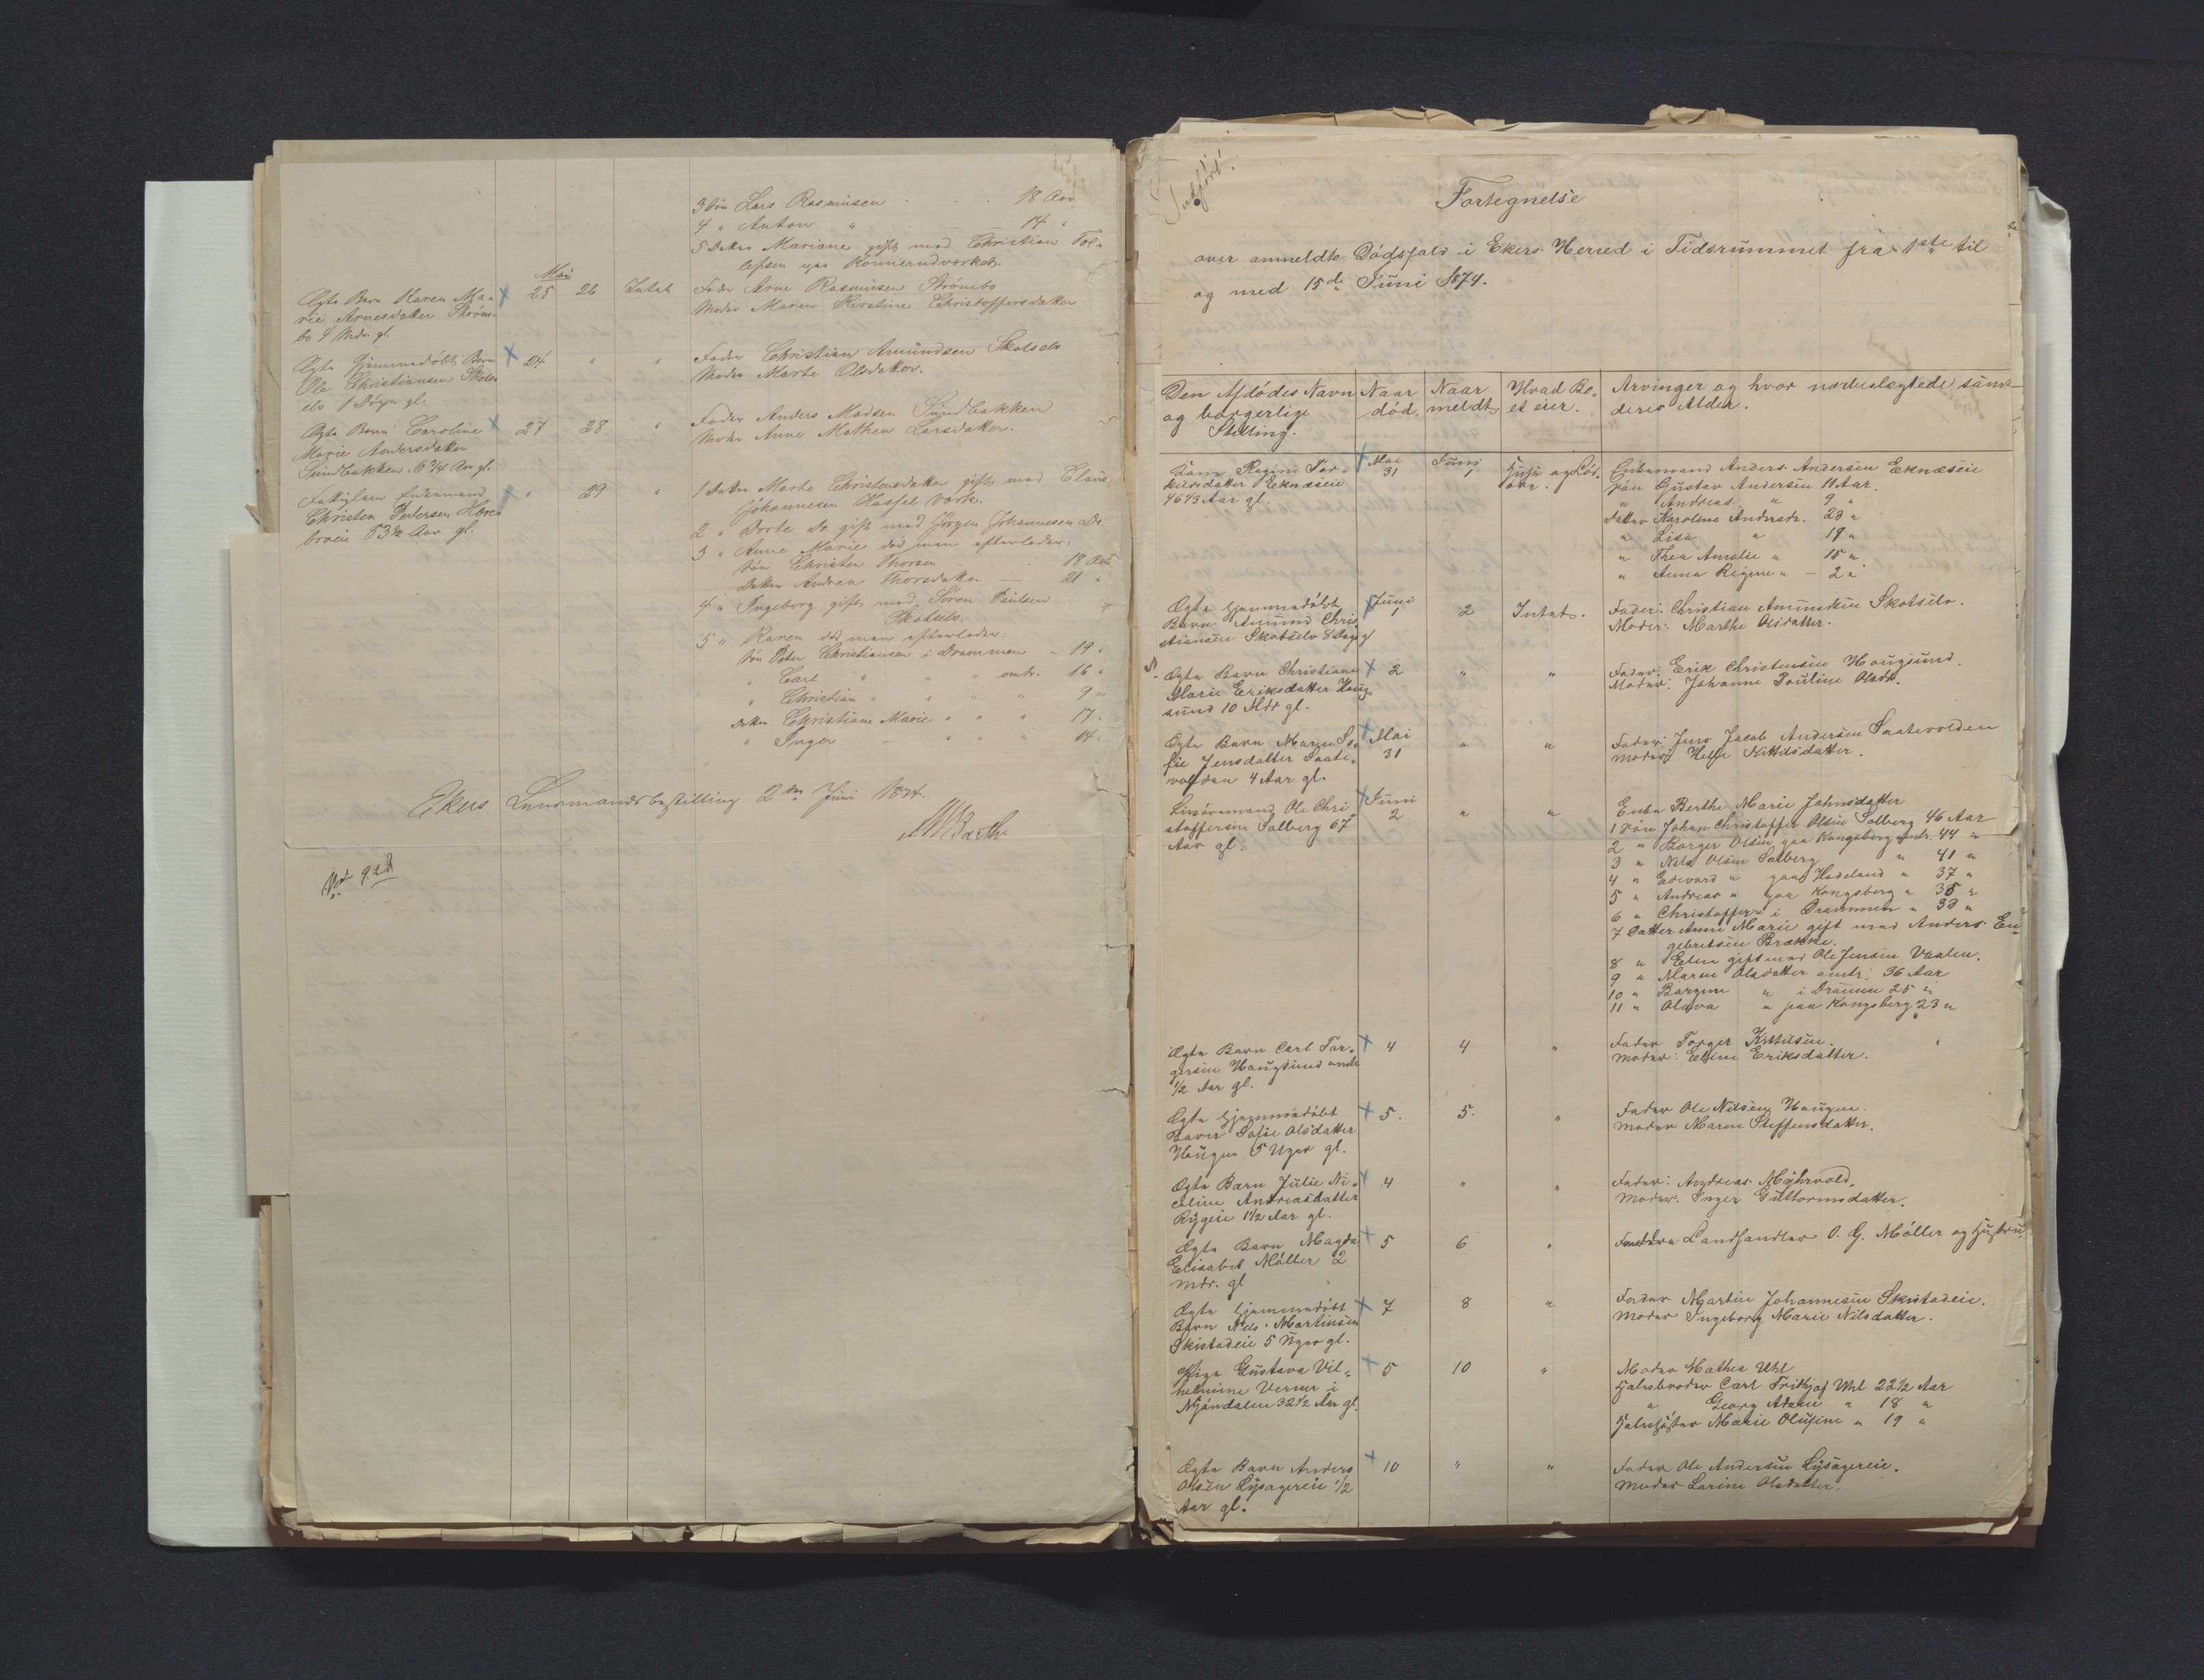 3 Søn Lars Rasmusen . . . 18 Aar
4 " Anton " — 14 "
5 Datter Mariane gift med Christian Tol-
lefsen paa Konnerudværket.
Mai
Ægte Barn Karen Ma- x 25 26 Intet Fader Arne Rasmusen Strømbo
rie Arnesdatter Strøm- Moder Maren Kirstine Christoffersdatter
bo 4 Mdr. gl.
Ægte Hjemmedøbt Barn x 24 " " Fader Christian Amundsen Skotselv
Ole Christiansen Skots- Moder Marte Olsdatter.
elv 1 Døgn gl.
Ægte Barn Caroline x 27 28 " Fader Anders Madsen Sundbakken
Marie Andersdatter Moder Anne Mathea Larsdatter.
Sundbakken. 6 3/4 Aar gl.
Fattiglem Enkemand x " 29 " 1 Datter Marte Christensdatter gift med Claus
Christen Pedersen Johannesen Hassel Værk.
83 1/2 Aar gl. 2 " Dorte do gift med Jørgen Johannesen do
3 " Anne Marie død men efterlader:
Søn Christen Thorsen . . 18 Aar
Datter Andrea Thorsdatter — 21 "
4 " Ingeborg gift med Søren Paulsen
Skotselv.
5 " Karen død men efterlader:
Søn Peter Christiansen i Drammen - 19 "
" Carl " " " omtr. 16 "
" Christian " " " " 9 "
datter Christiane Marie " " " 17 "
" Inger — " " " 14 "
Ekers Lensmandsbestilling 2den Juni 1874.
Fortegnelse
over anmeldte Dødsfald i Ekers Herred i Tidsrummet fra 1ste til
og med 15de Juni 1874.
Den Afdødes Navn Naar Naar Hvad Bo- Arvinger og hvor nærbeslægtede samt
og borgerlige død. meldt. et eier. deres Alder.
Stilling.
Kone Regine Tor- x Mai Juni Huus og Løs- Enkemand Anders Andersen Eknæseie
kilsdatter Eknæseie 31 1 øre. Søn Gustav Andersen 11 Aar.
46 1/3 Aar gl. " Andreas " 9 "
Datter Karoline Andersdr. 23 "
" Lisa " 19 "
" Thea Amalie " 15 "
" Anna Regine " — 2 "
Ægte hjemmedøbt x Juni 2 Intet. Fader: Christian Amundsen Skotselv.
Barn Amund Chri- 1 Moder: Marthe Olsdatter.
stiansen Skotselv 8 Dage gl
Ægte Barn Christiane x 2 " " Fader: Erik Christensen Hougsund.
Marie Eriksdatter Houg- Moder: Johanne Pouline Olsdr.
sund 10 Mdr gl.
Ægte Barn Maren So- x Mai " " Fader: Jens Jacob Andersen Saatevolden
fie Jensdatter Saate- 31 Moder: Helge Kittilsdatter.
volden 4 Aar gl.
Ole Chri- x Juni " " Enke Berthe Marie Johnsdatter
stoffersen Solberg 67 2 1 Søn Johan Christopher Olsen Solberg 46 Aar
Aar gl. 2 " Borger Olsen paa Kongsberg omtr. 44 "
3 " Nils Olsen Solberg " 41 "
4 " Edvard " paa Hadeland " 37 "
5 " Andreas " paa Kongsberg " 35 "
6 " Christoffer " i Drammen " 33 "
7 Datter Anne Marie gift med Anders En-
gebretsen Brække.
8 " Elen gift med Ole Jensen Vaalen.
9 " Maren Olsdatter omtr. 36 Aar
10 " Borgine " i Dramen 25 "
11 " Olava " paa Kongsberg 23 "
Ægte Barn Carl Tor- x 4 4 " Fader Torger Kittilsen.
gersen Hougsund omtr Moder: Eline Eriksdatter.
1/2 Aar gl.
Ægte hjemmedøbt x 5. 5. " Fader Ole Nilsen Hougen.
Barn Sofie Olsdatter Moder Maren Steffensdatter.
Hougen 5 Uger gl.
Ægte Barn Julie Ni- x 4 " " Fader: Andreas Myhrvold.
coline Andreasdatter Moder: Inger Guttormsdatter.
Rygeie 1 1/2 Aar gl.
Ægte Barn Magda x 5 6 " Forældre Landhandler O. G. Møller og Hustru.
Elisabet Møller 2
Mdr. gl
Ægte hjemmedøbt x 7 8 " Fader Martin Johannesen Skistadeie.
Barn Nils Martinsen Moder Ingeborg Marie Nilsdatter.
Skistadeie 5 Uger gl.
Pige Gustava Vil- x 5 10 " Moder Mathea Uhl
helmine Verner i Halvbroder Carl Frithjof Uhl 22 1/2 Aar
Mjøndalen 32 1/2 Aar gl. " Georg Adam " 18 "
Halvsøster Marie Olufine " 19 "
Ægte Barn Anders x 10 " " Fader Ole Andersen Lysagereie.
Olsen Lysagereie 1/2 Moder Larine Olsdatter.
Aar gl.